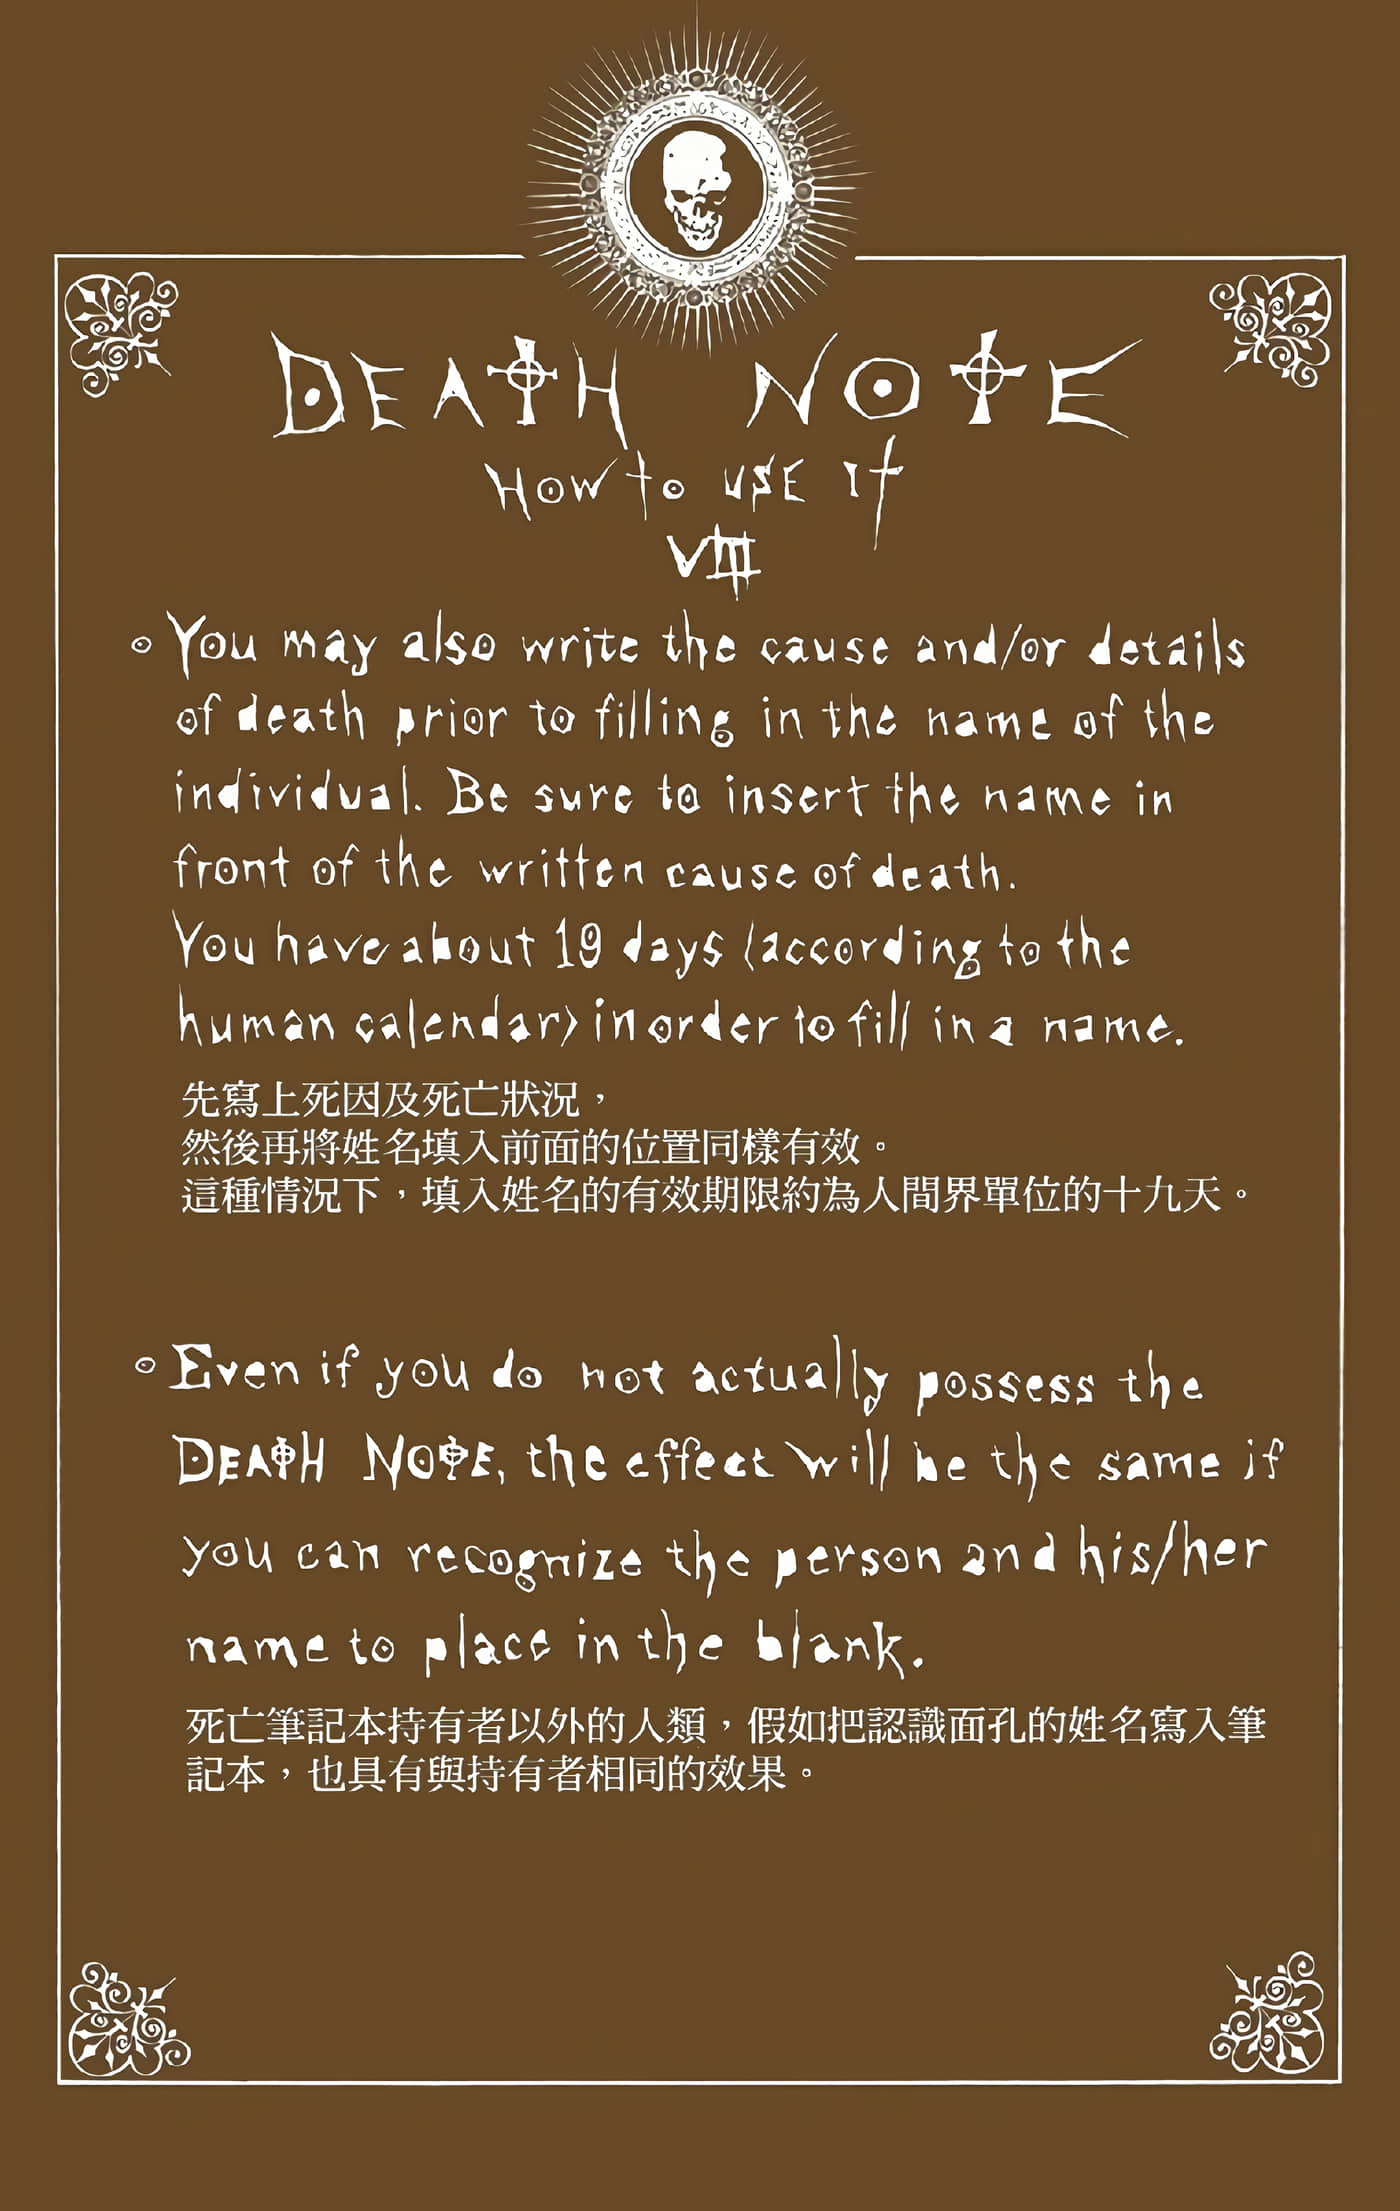 DEATH NOTE
How to use it
VIII
You may also write the cause and/or details
of death prior to filling in the name of the
individual. Be sure to insert the name in
front of the written cause of death.
You have about 19 days (according to the
human calendar) in order to fill in a name.
先寫上死因及死亡狀況，
然後再將姓名填入前面的位置同樣有效。
這種情況下，填入姓名的有效期限約為人間界單位的十九天。
Even if you do not actually possess the
DEATH NOTE, the effect will be the same if
you can recognize the person and his/her
name to place in the blank.
死亡筆記本持有者以外的人類，假如把認識面孔的姓名寫入筆
記本，也具有與持有者相同的效果。